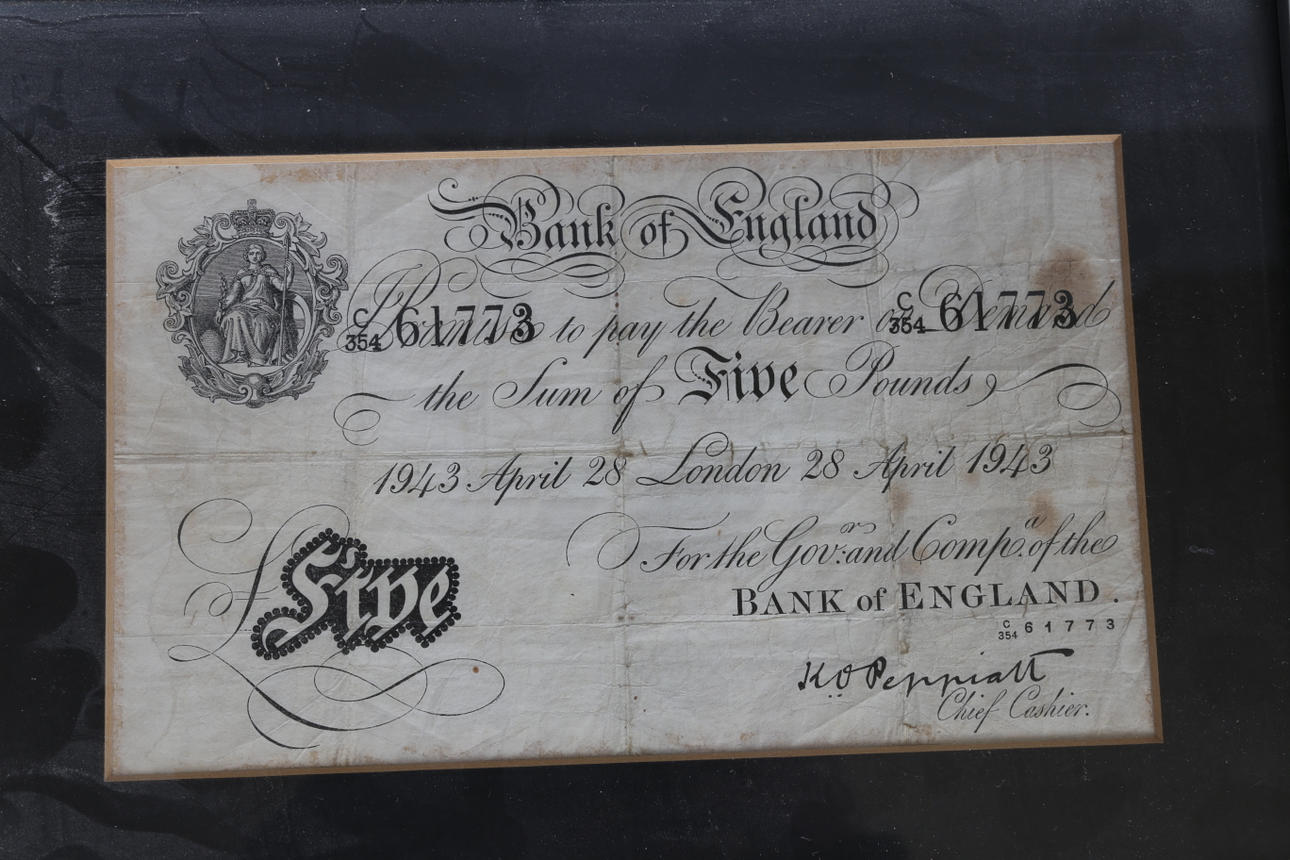 Bank of England
C
354 61773 I Promise to pay the Bearer on Demand C
354 61773
the Sum of Five Pounds
1943 April 28 London 28 April 1943
Five
For the Gov.r and Comp.a of the
BANK of ENGLAND.
C
354 61773
K O Peppiatt
Chief Cashier.